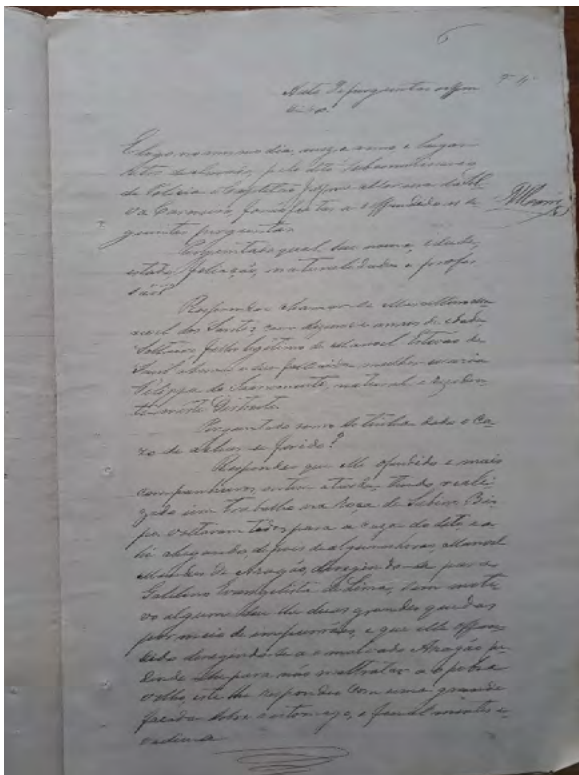 Auto de perguntas ao offen
dido.
E logo no mesmo dia, mez e anno e lugar
retro declarado, pelo dito Subcommissario
de Policia o Capitão
va Carneiro, foram feitas ao offendido as se
guintes perguntas.
Perguntado qual seu nome, idade,
estado, filiação, naturalidade e profis
são?
Respondeu chamar-se Marcellino Ma
noel dos Santos, com dezenove annos de idade,
Solteiro, filho legitimo de Manoel Estevão de
Sant'Anna e sua fallecida mulher Maria
Felippa do Sacramento, natural e residen
te neste Districto.
Perguntado como se tinha dado o ca
zo de achar-se ferido?
Respondeu que elle offendido e mais
companheiros, tendo reali
zado um trabalho na roça de Sabino
voltaram todos para a caza do dito, e a
hi chegando, depois de algumas horas, Manoel
Mendes de Aragão, dirigindo-se para
Galdino Evangelista de Lima, sem moti
vo algum deu-lhe duas grandes quedas
por meio de empurrões, e que elle offen
dido dirigindo-se a o malvado Aragão pe
dindo-lhe para não maltratar a o pobre
velho, este lhe respondeu com uma grande
facada sobre o estomago, e finalmente e
vadiu-se